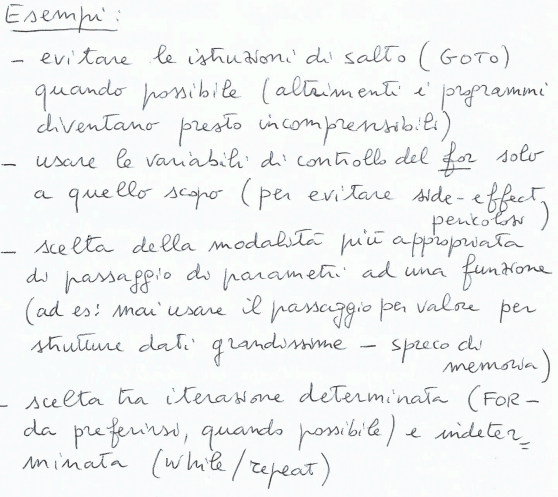 Esempi:
- evitare le istruzioni di salto (GOTO)
quando possibile (altrimenti i programmi
diventano presto incomprensibili)
- usare le variabili di controllo del for solo
a quello scopo (per evitare side-effect
pericolosi)
- scelta della modalità più appropriata
di passaggio di parametri ad una funzione
(ad es: mai usare il passaggio per valore per
strutture dati grandissime - spreco di
memoria)
- scelta tra iterazione determinata (FOR -
da preferirsi, quando possibile) e indeter=
minata (while/repeat)